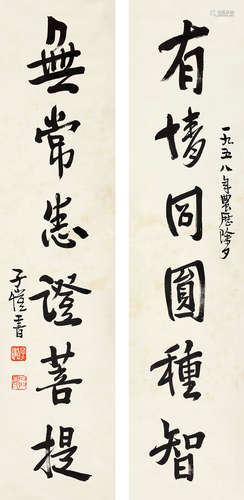 一九五八年農歷除夕
有情同圓種智
無常悉證菩提
子愷書